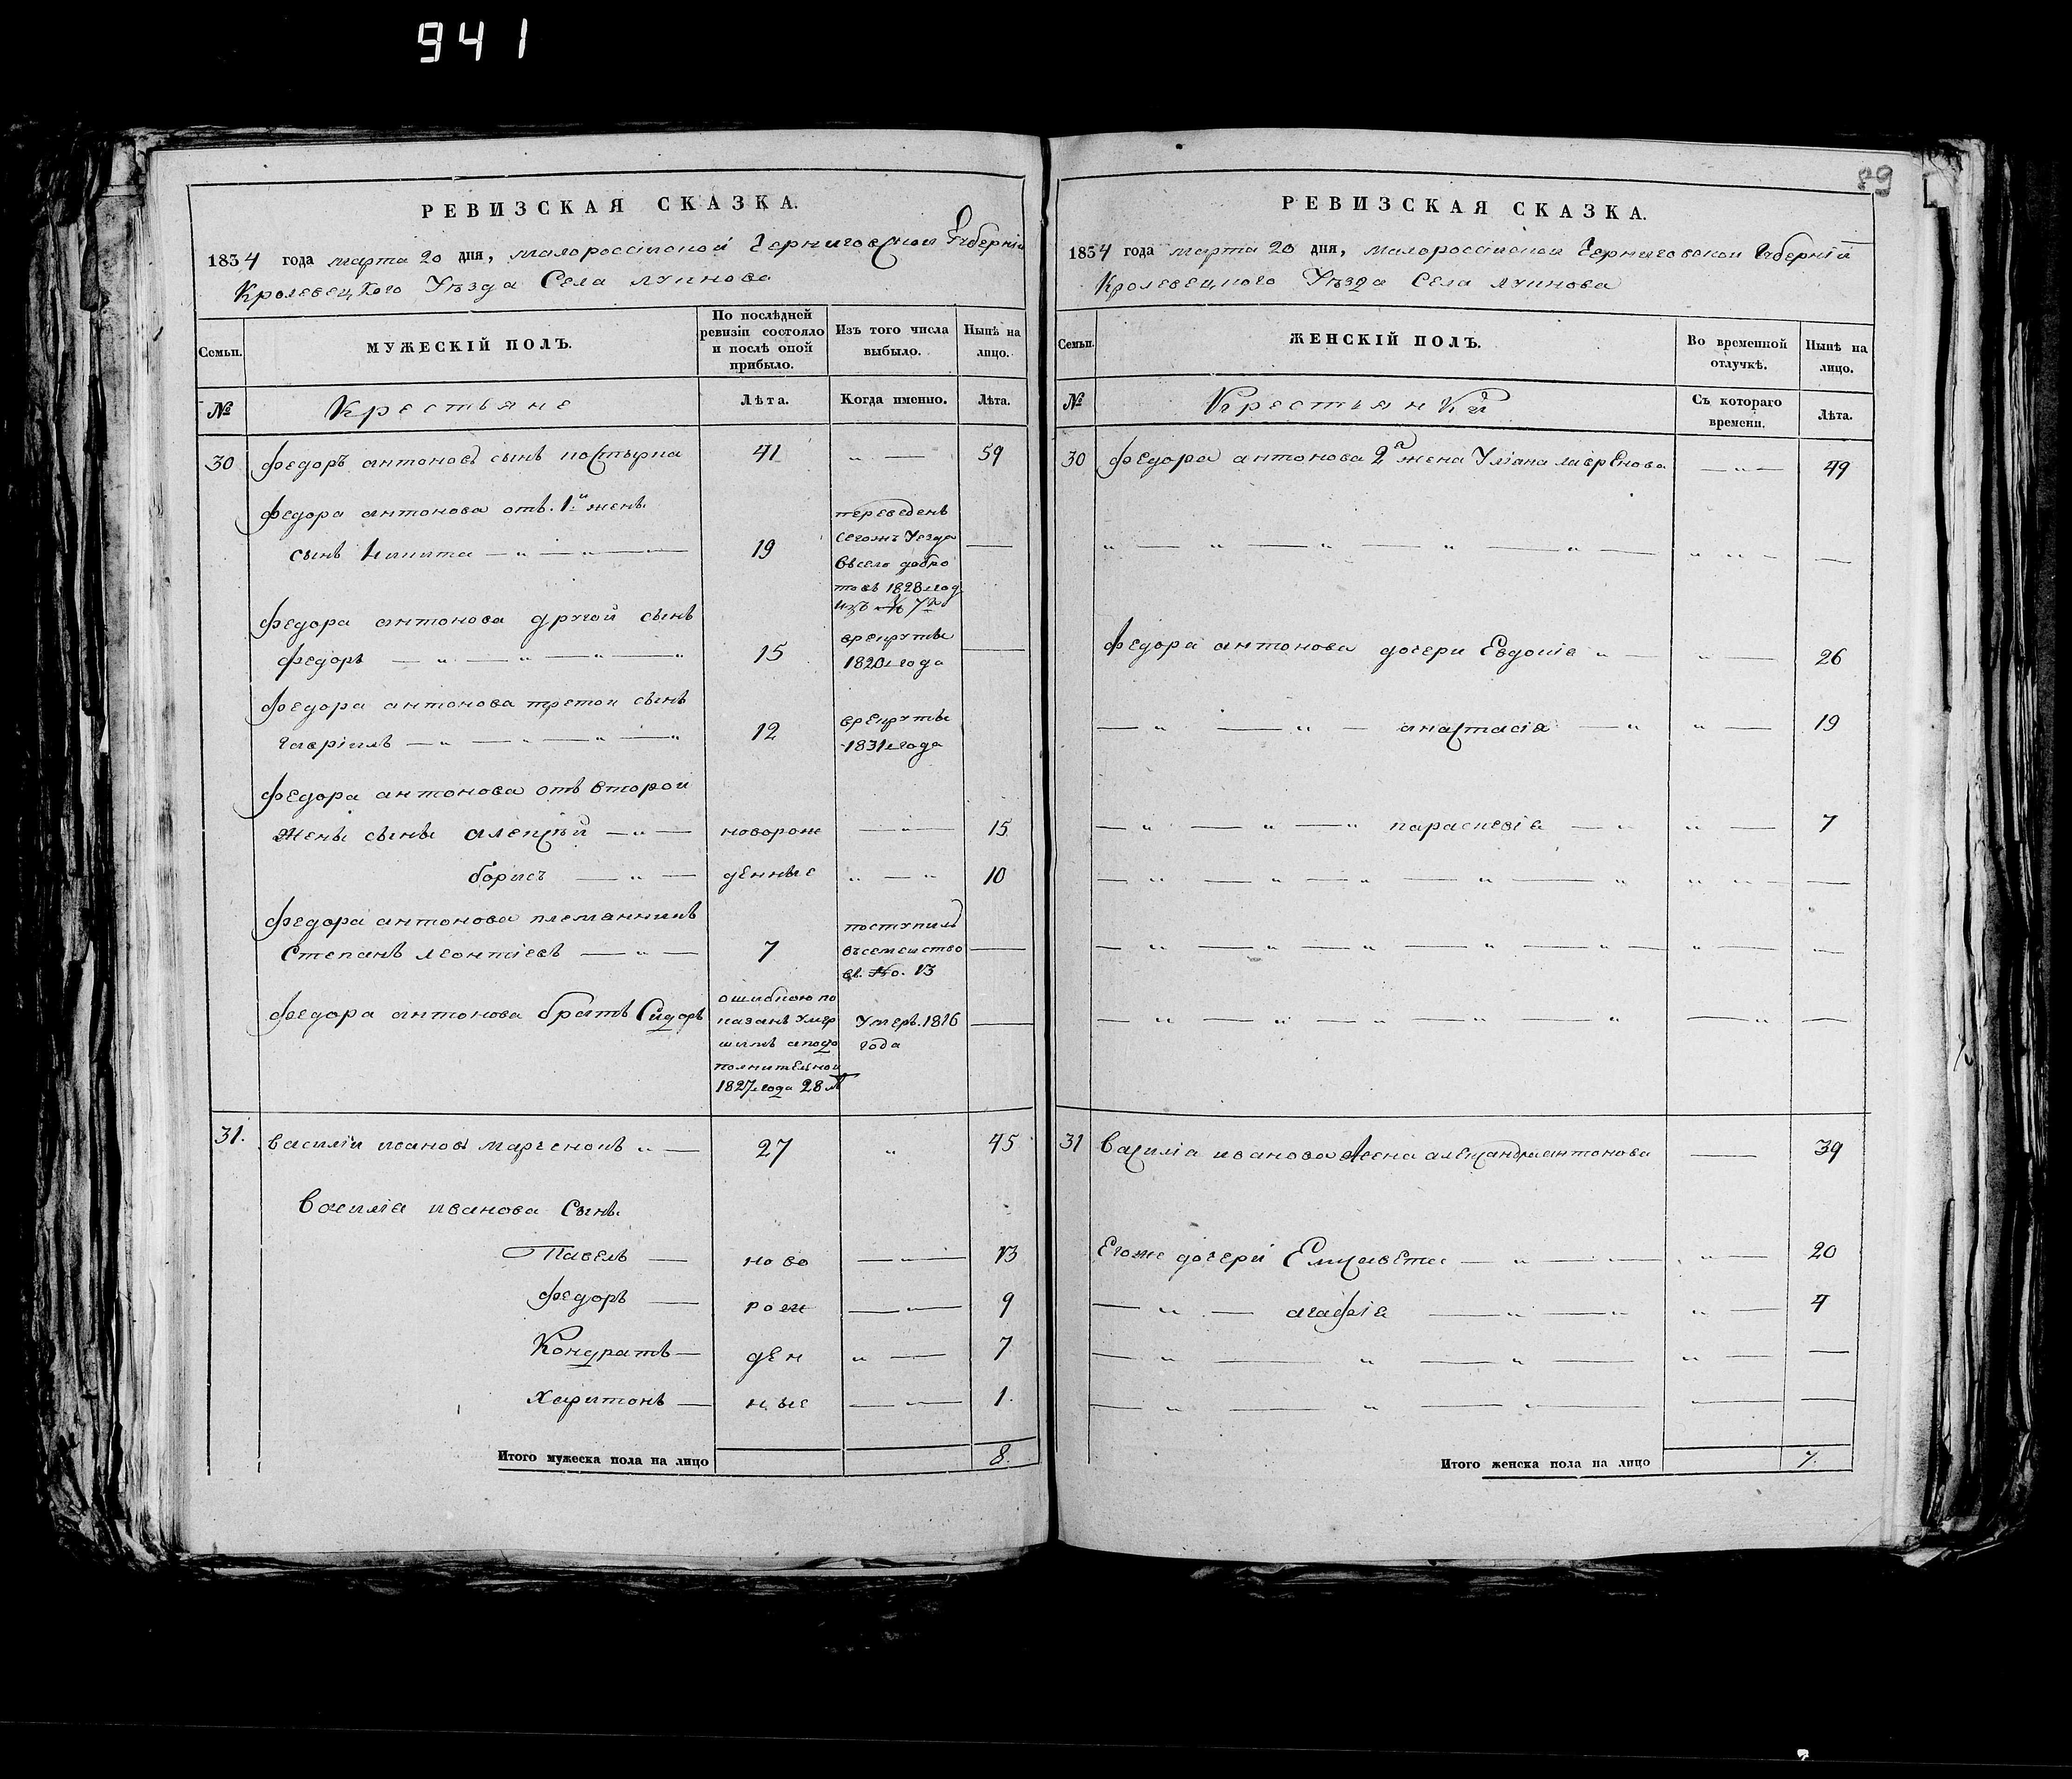 941
РЕВИЗСКАЯ СКАЗКА.
1834 года марта 20 дня, малороссiйской Черниговской Губернiи
Кролевецкого Уѣзда Села лукнова
Семьи.
МУЖЕСКIЙ ПОЛЪ.
По послѣдней
ревизiи состояло
и послѣ оной
прибыло.
Изъ того числа
выбыло.
Нынѣ на
лицо.
№
Крестьяне
Лѣта.
Когда именно.
Лѣта.
30 федоръ антоновъ сынъ 41 59
федора антонова отъ 1й жены
сынъ Никита 19
переведенъ
сегожъ Уезда
въсело добро
товъ 1828 год
федора антонова другой сынъ
федоръ 15
врекруты
1820 года
федора антонова третои сынъ
гаврiилъ 12
врекруты
1831 года
федора антонова отъ второи
жены сыны алексѣй новорож 15
борисъ денные 10
федора антонова племянникъ
Степанъ леонтiевъ 7
поступилъ
въсемейство
в. No. 13
федора антонова братъ Сидоръ
ошибкою по
казанъ умер
шимъ аподо
полнительной
1827 года 28 л
Умеръ 1816
года
31. василiй ивановъ марченокъ 27 45
василiя иванова сынъ
Павелъ ново 13
федоръ рож 9
Кондратъ ден 7
харитонъ ные 1.
Итого мужеска пола на лицо 8.
89
РЕВИЗСКАЯ СКАЗКА.
1834 года марта 20 дня, малороссiйской Черниговской Губернiй
Кролевецкого Уѣзда Села лукнова
Семьи.
ЖЕНСКIЙ ПОЛЪ.
Во временной
отлучкѣ.
Нынѣ на
лицо.
№
Крестьянкй
Съ котораго
времени.
Лѣта.
30 федора антонова 2я жена Улiана лаврЕнова 49
федора антонова дочери Евдокiя 26
анастасiя 19
параскевiя 7
31 василiя иванова жена александра антонова 39
Егоже дочерй Елисавета 20
агафiя 4
Итого женска пола на лицо 7.